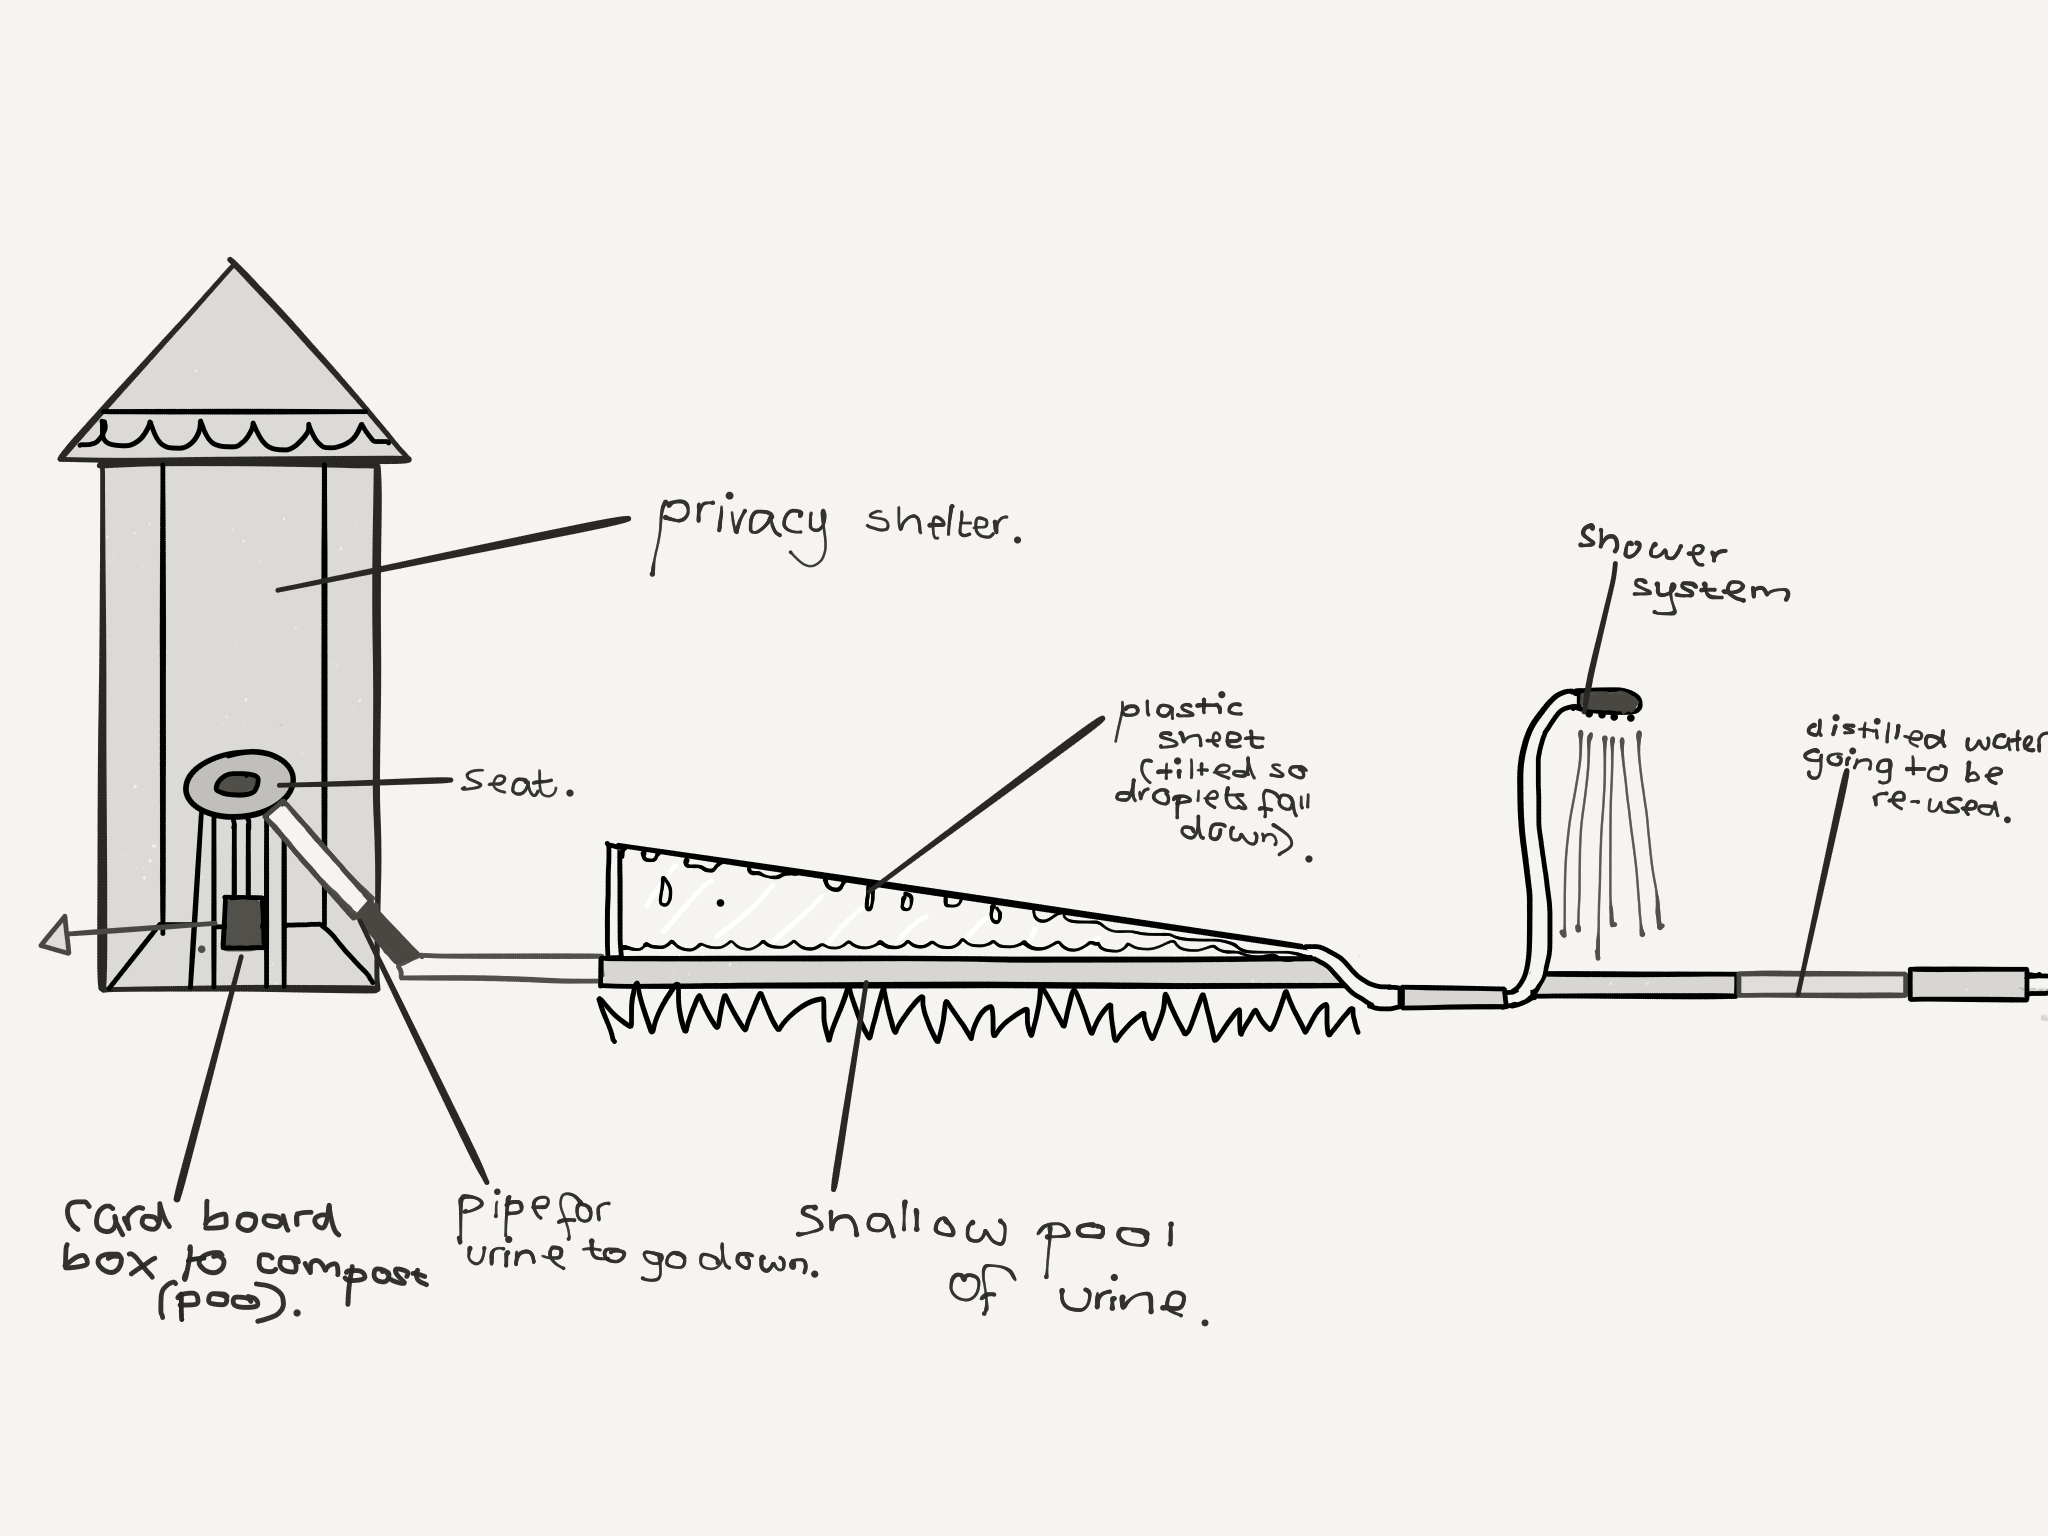 privacy shelter.
shower
system
plastic
sheet
(tilted so
droplets fall
down).
distilled water
going to be
re-used.
seat.
card board
box to compost
(poo).
pipe for
urine to go down.
shallow pool
of urine.